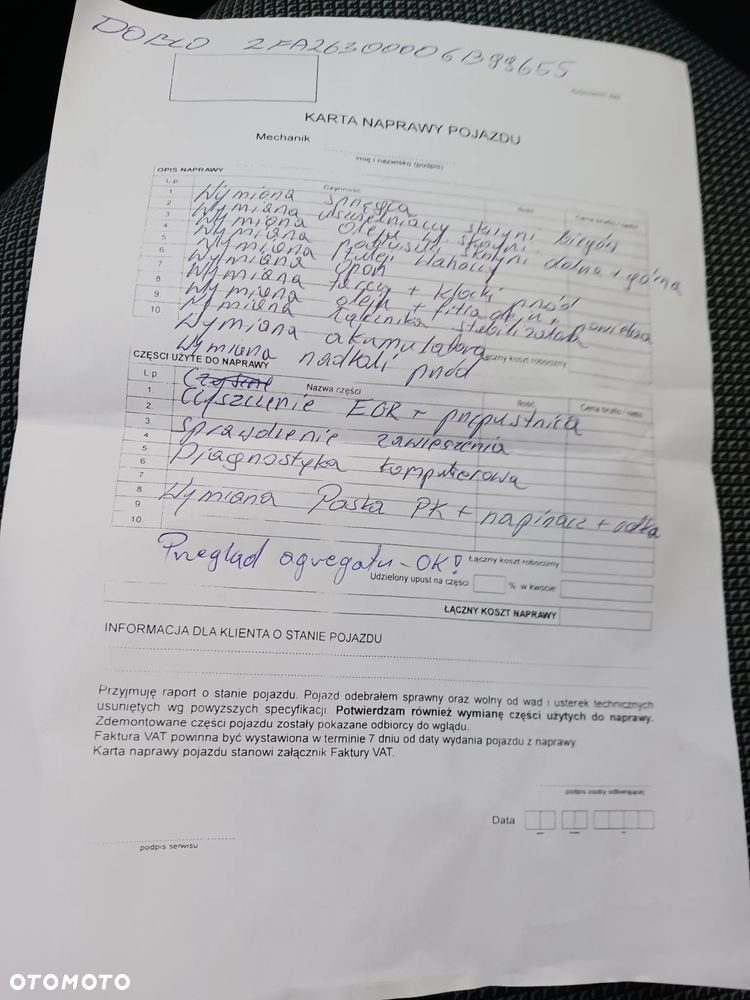 DOBLO ZFA26300006B99655
KARTA NAPRAWY POJAZDU
Mechanik
imię i nazwisko (podpis)
OPIS NAPRAWY
L.p. Czynność Ilość Cena brutto / netto
1 Wymiana sprzęgła
2 Wymiana uszczelniaczy skrzyni biegów
3 Wymiana oleju w skrzyni
4 Wymiana poduszki skrzyni dolna + górna
5 Wymiana tulei wahaczy
6 Wymiana opon
7 Wymiana tarczy + klocki przód
8 Wymiana oleju + filtra oleju, powietrza
9 Wymiana łącznika stabilizatora
10 Wymiana akumulatora
Wymiana nadkoli przód
Łączny koszt robocizny
CZĘŚCI UŻYTE DO NAPRAWY
L.p. Nazwa części Ilość Cena brutto / netto
1 Czyszczenie EGR + przepustnica
2
3 Sprawdzenie zawieszenia
4
5 Diagnostyka komputerowa
6
7
8 Wymiana Paska PK + napinacz +
9
10
Przegląd agregatu - OK!
Łączny koszt robocizny
Udzielony upust na części % w kwocie
ŁĄCZNY KOSZT NAPRAWY
INFORMACJA DLA KLIENTA O STANIE POJAZDU
Przyjmuję raport o stanie pojazdu. Pojazd odebrałem sprawny oraz wolny od wad i usterek technicznych
usuniętych wg powyższych specyfikacji. Potwierdzam również wymianę części użytych do naprawy.
Zdemontowane części pojazdu zostały pokazane odbiorcy do wglądu.
Faktura VAT powinna być wystawiona w terminie 7 dniu od daty wydania pojazdu z naprawy.
Karta naprawy pojazdu stanowi załącznik Faktury VAT.
podpis osoby odbierającej
Data
podpis serwisu
OTOMOTO